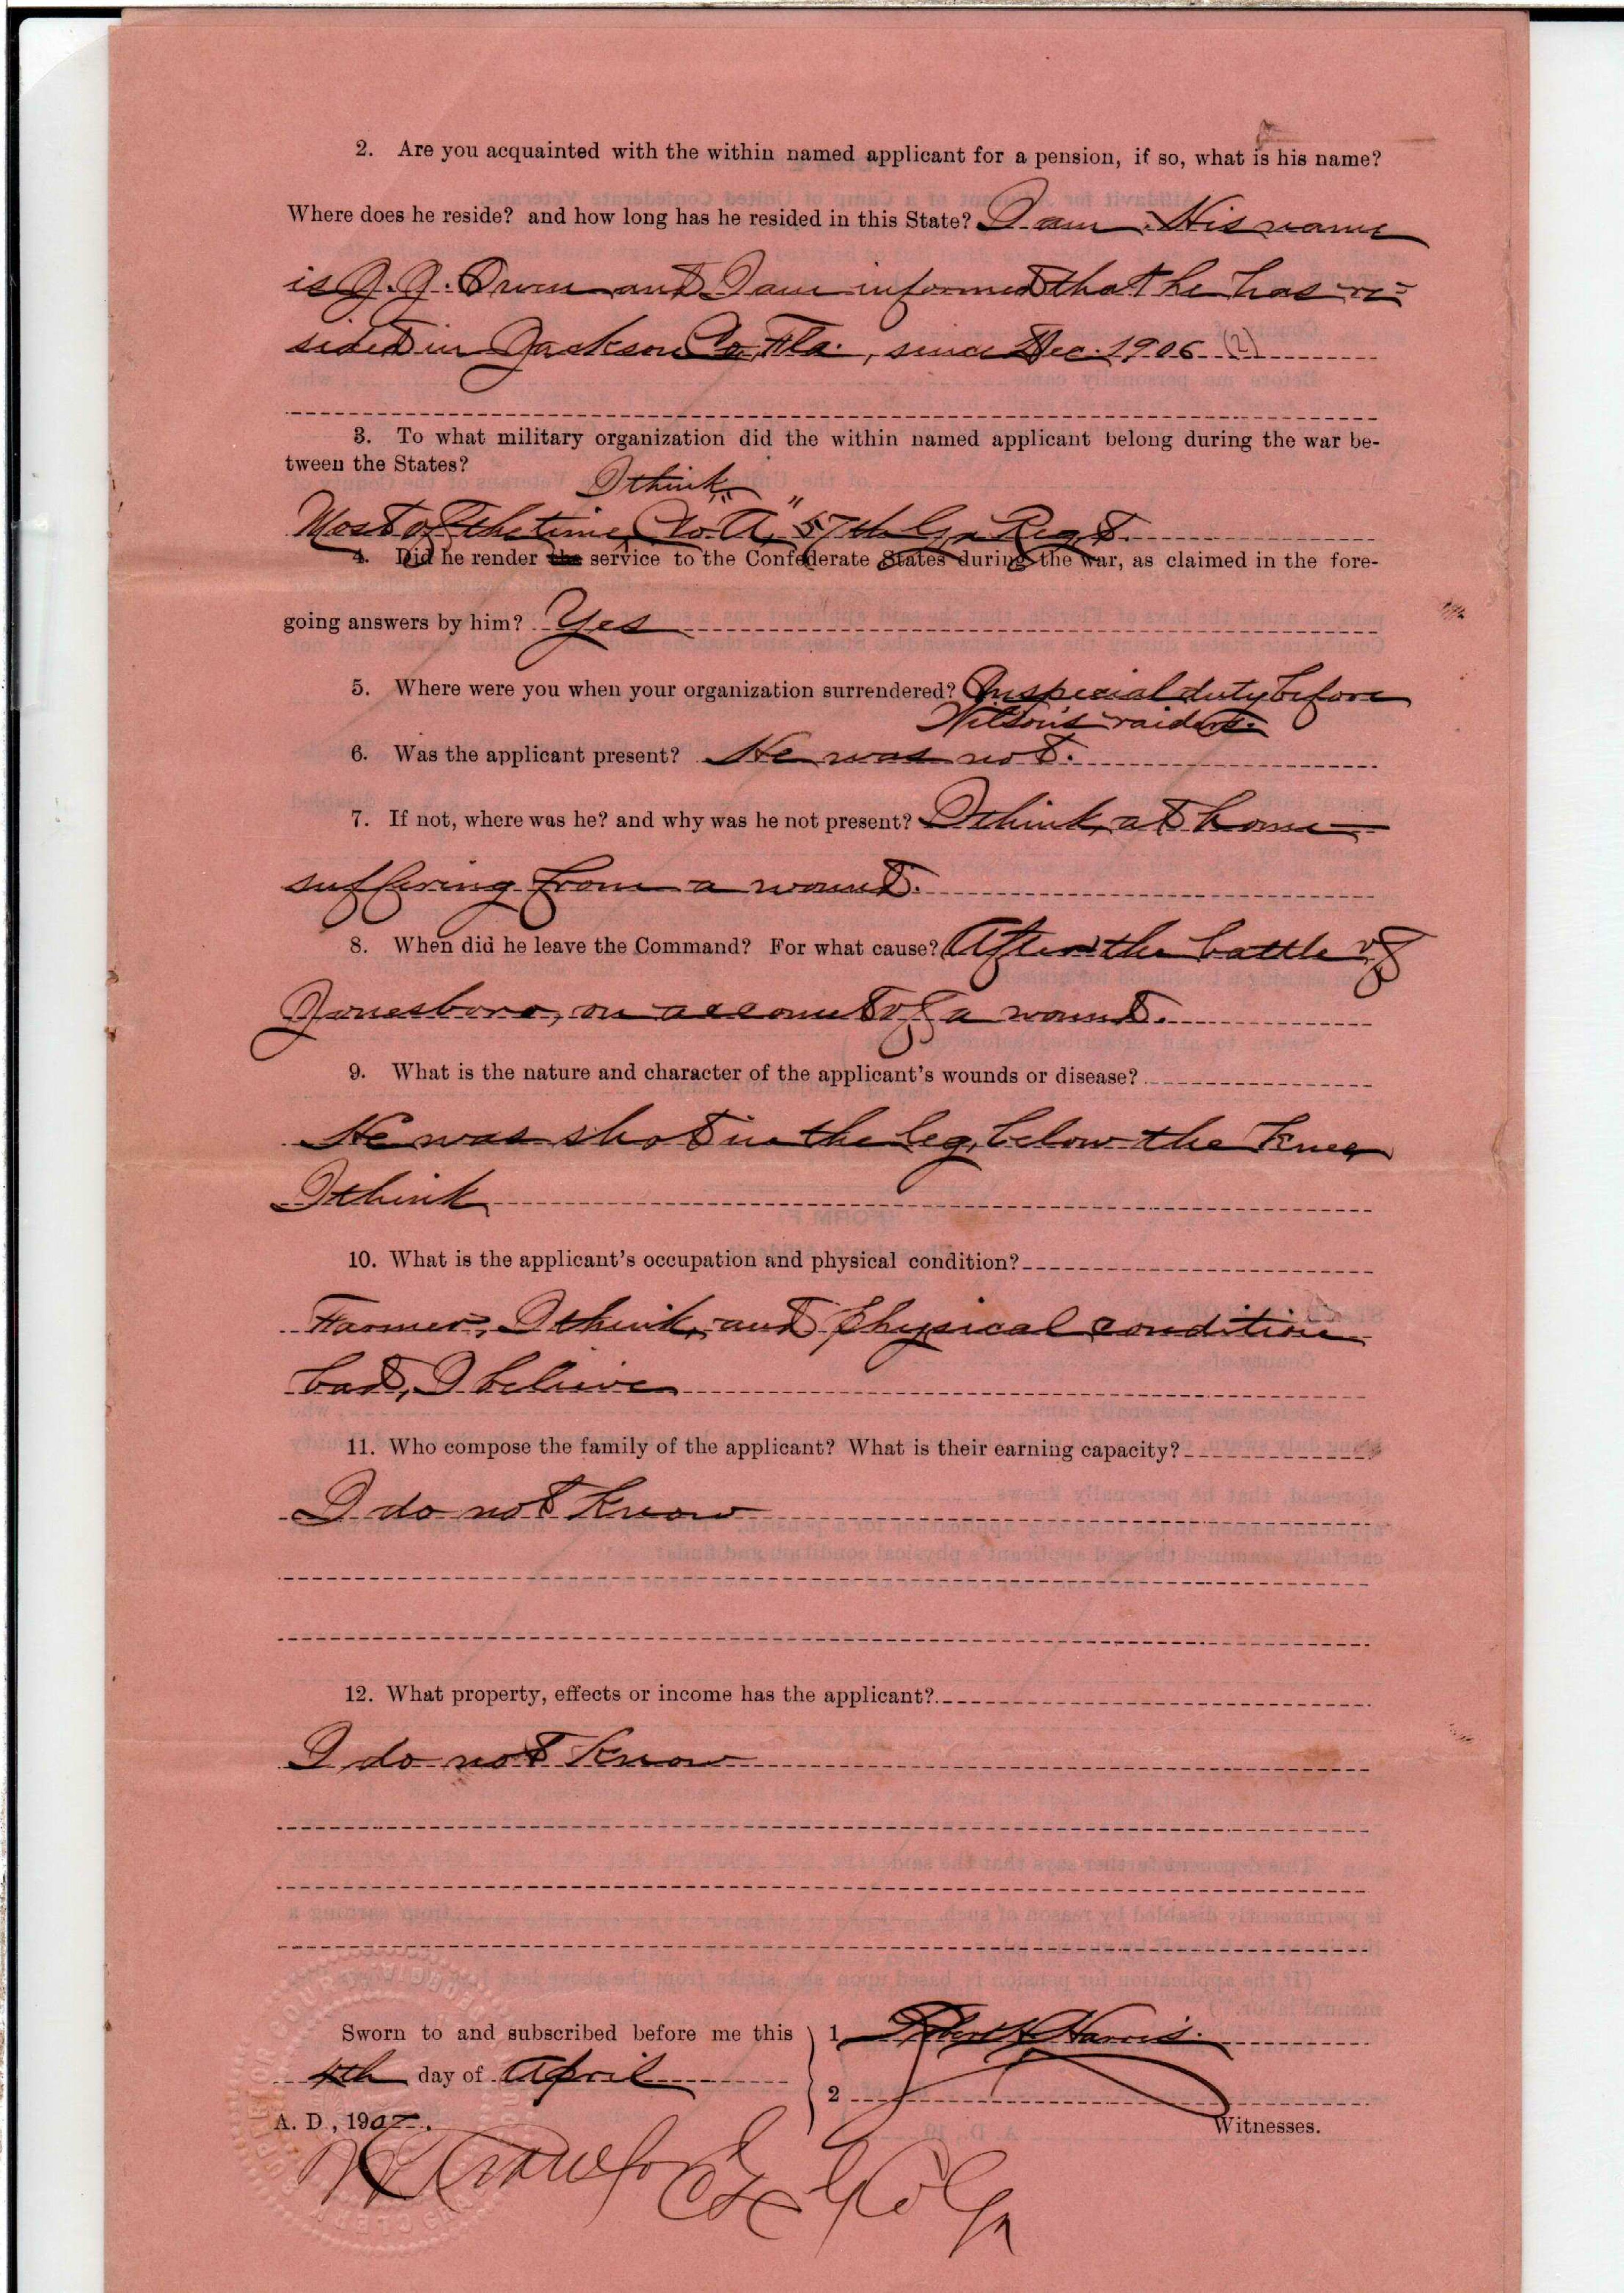 2. Are you acquainted with the within named applicant for a pension, if so, what is his name?
Where does he reside? and how long has he resided in this State? I am. His name
is J. J. Owen and I am informed that he has re=
sided in Jackson Co, Fla., since Dec. 1906 (2)
3. To what military organization did the within named applicant belong during the war be-
tween the States?
I think,
Most of the time, Co. "A," 57th Ga Regt.
4. Did he render the service to the Confederate States during the war, as claimed in the fore-
going answers by him? Yes
5. Where were you when your organization surrendered? On special duty before
Wilson's raiders.
6. Was the applicant present? He was not.
7. If not, where was he? and why was he not present? I think, at home
suffering from a wound.
8. When did he leave the Command? For what cause? After the battle of
Jonesboro, on account of a wound.
9. What is the nature and character of the applicant's wounds or disease?
He was shot in the leg, below the knee,
I think
10. What is the applicant's occupation and physical condition?
Farmer, I think, and physical condition
bad, I believe
11. Who compose the family of the applicant? What is their earning capacity?
I do not know
12. What property, effects or income has the applicant?
I do not know
Sworn to and subscribed before me this
4th day of April
A. D., 1907.
1 Robert H Harris.
2
Witnesses.
Crawford